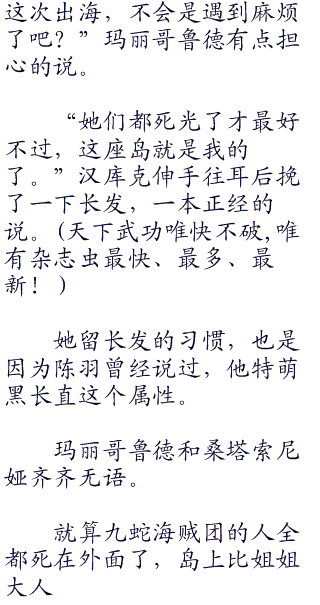 这次出海，不会是遇到麻烦
了吧？”玛丽哥鲁德有点担
心的说。
“她们都死光了才最好
不过，这座岛就是我的
了。”汉库克伸手往耳后挽
了一下长发，一本正经的
说。(天下武功唯快不破,唯
有杂志虫最快、最多、最
新！)
她留长发的习惯，也是
因为陈羽曾经说过，他特萌
黑长直这个属性。
玛丽哥鲁德和桑塔索尼
娅齐齐无语。
就算九蛇海贼团的人全
都死在外面了，岛上比姐姐
大人